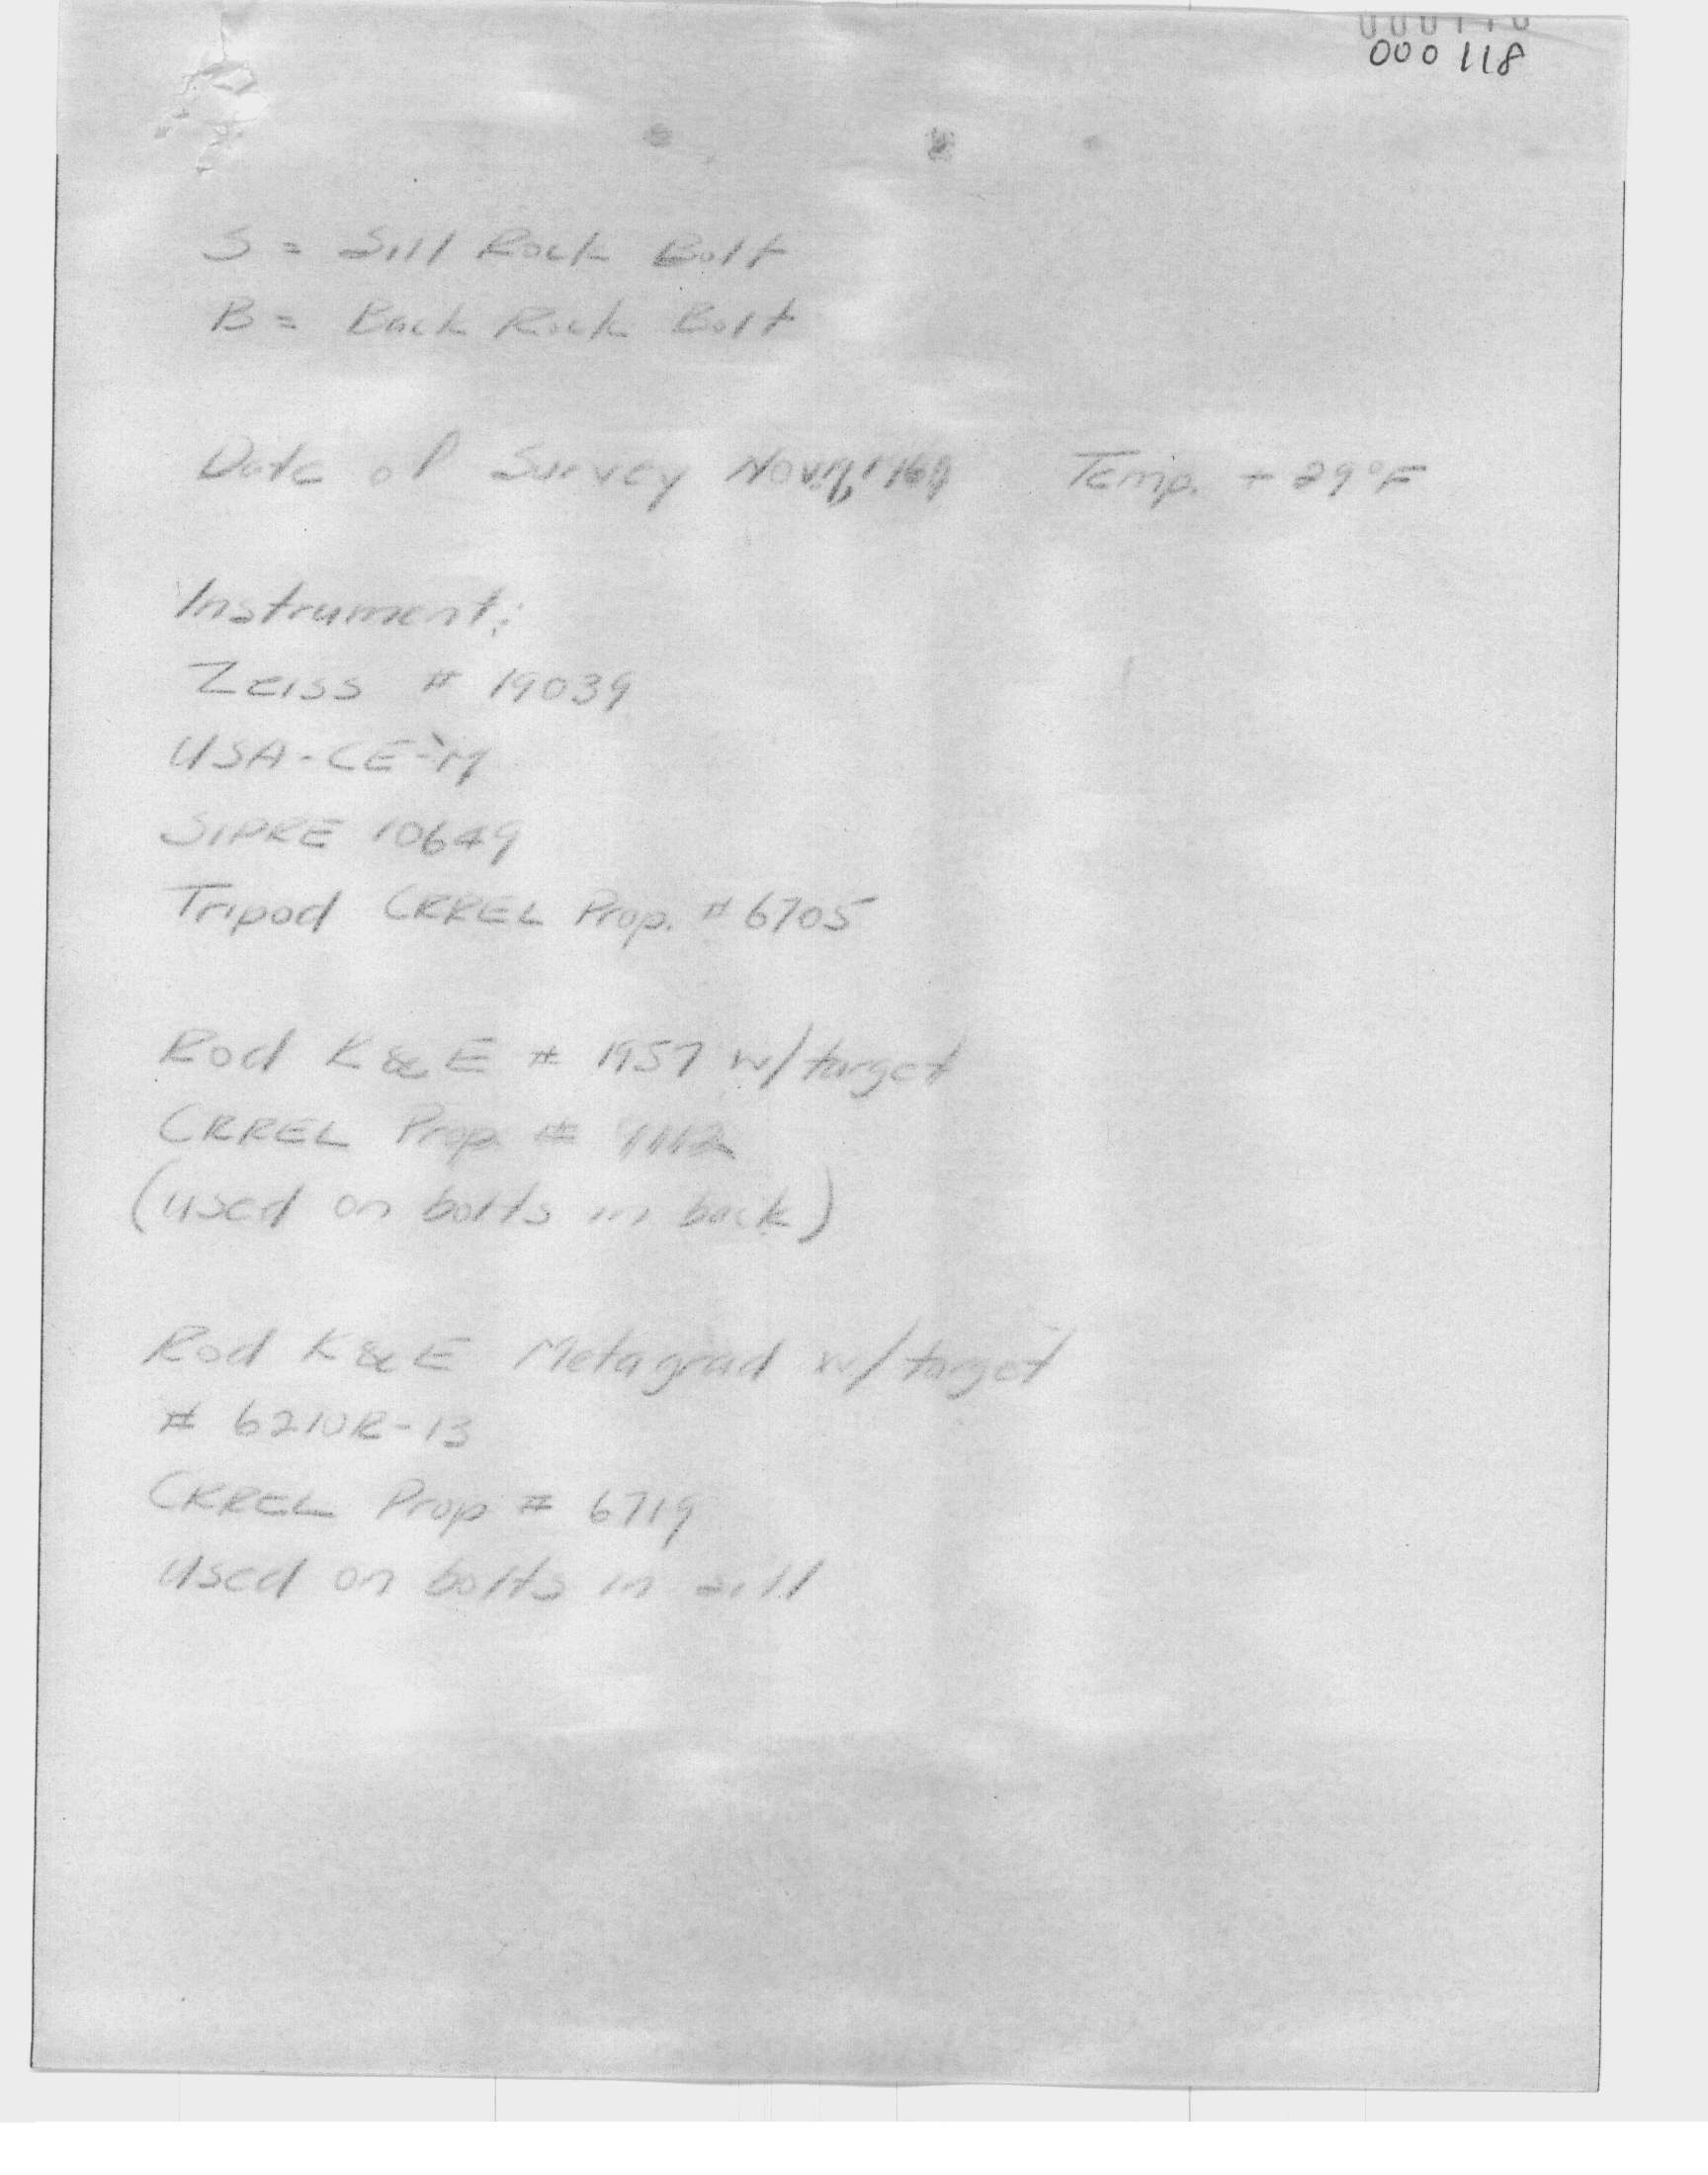 000118
S = Sill Rock Bolt
B = Back Rock Bolt
Date of Survey Temp. + 29°F
Instrument:
Zeiss # 19039
USA-CE-M
SIPRE 10649
Tripod CRREL Prop. # 6705
Rod K & E # 1957 w/target
CRREL Prop. #
(used on bolts in back)
Rod K & E Metagrad w/target
# 6210R-13
CRREL Prop # 6719
Used on bolts in sill